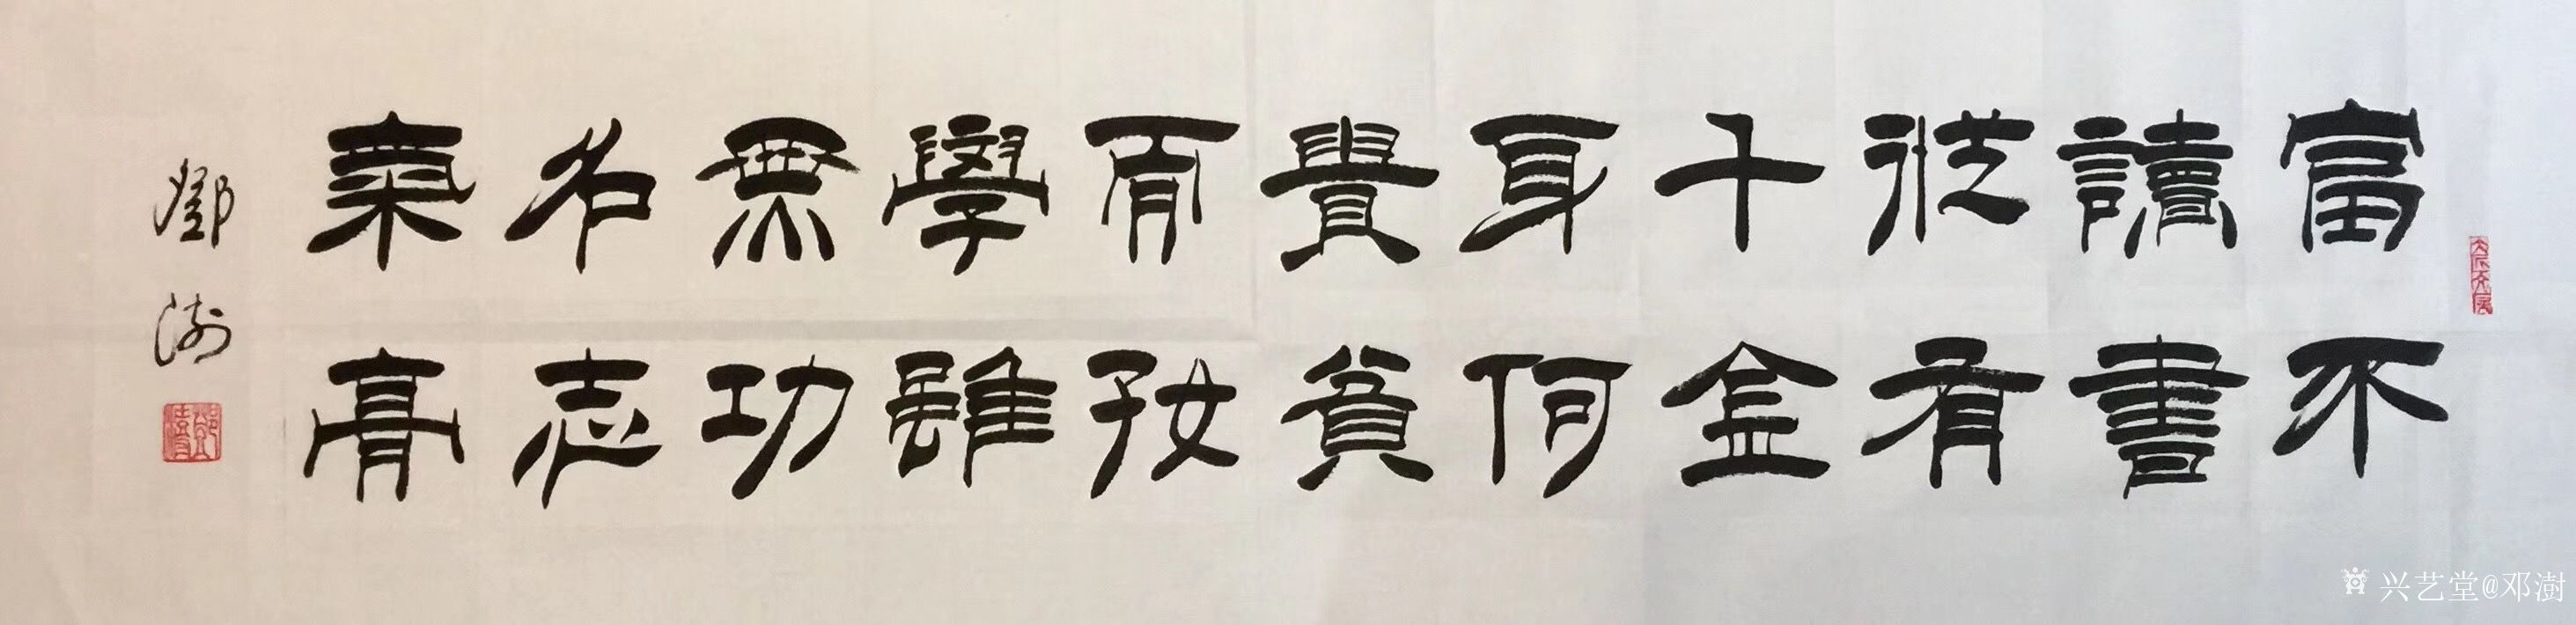 富不
讀書
從有
千金
身何
貴貧
而好
學雖
無功
名志
氣高
鄧澍
兴艺堂@邓澍